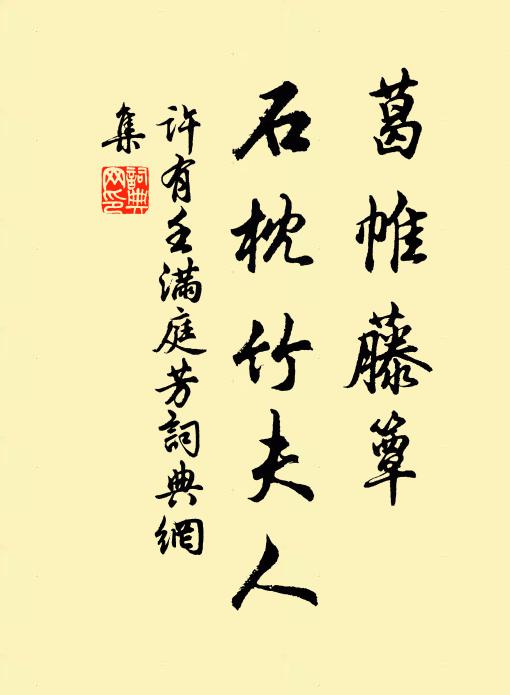 葛帷藤簟
石枕竹夫人
許有壬滿庭芳詞典網
集
詞典网印